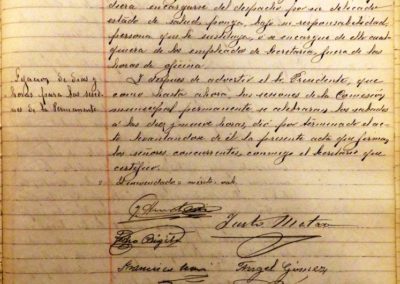 diera encargarse del despacho por su delicado
estado de salud ponga, bajo su responsabilidad,
persona que le sustituya o se encargue de ello cual
quiera de los empleados de Secretaria fuera de las
horas de oficina.
Fijacion de dias y
horas para las
de la Permanente.
Y despues de advertir el Sr. Presidente, que
como hasta ahora, las sesiones de la Comisión
municipal permanente se celebraran los sabados
a las diez y nueve horas, dió por terminado el ac
to levantandose de él la presente acta que firman
los señores concurrentes conmigo el Secretario que
certifico.
Justo Mata
Francisco
Angel Gómez